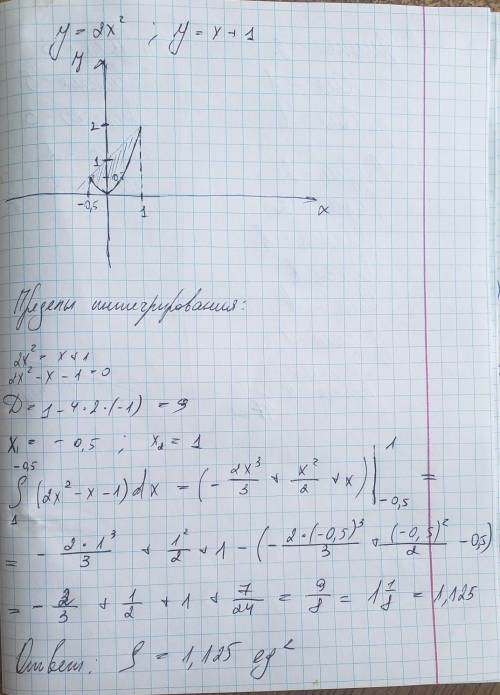 y = 2x² ; y = x + 1
y
2
1
0,5
-0,5
1
x
Пределы интегрирования:
2x² = x + 1
2x² - x - 1 = 0
D = 1 - 4 · 2 · (-1) = 9
x₁ = - 0,5 ; x₂ = 1
∫₁^-0,5 (2x² - x - 1) dx = (- 2x³/3 + x²/2 + x) |₋₀,₅^1 =
= - 2 · 1³/3 + 1²/2 + 1 - (- 2 · (-0,5)³/3 + (-0,5)²/2 - 0,5)
= - 2/3 + 1/2 + 1 + 7/24 = 9/8 = 1 1/8 = 1,125
Ответ: S = 1,125 ед²